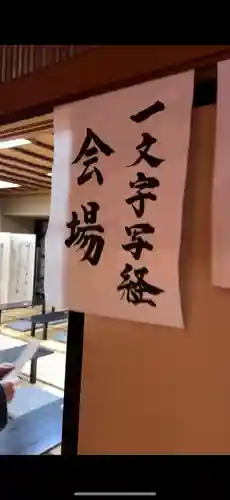 一文字写経
会場